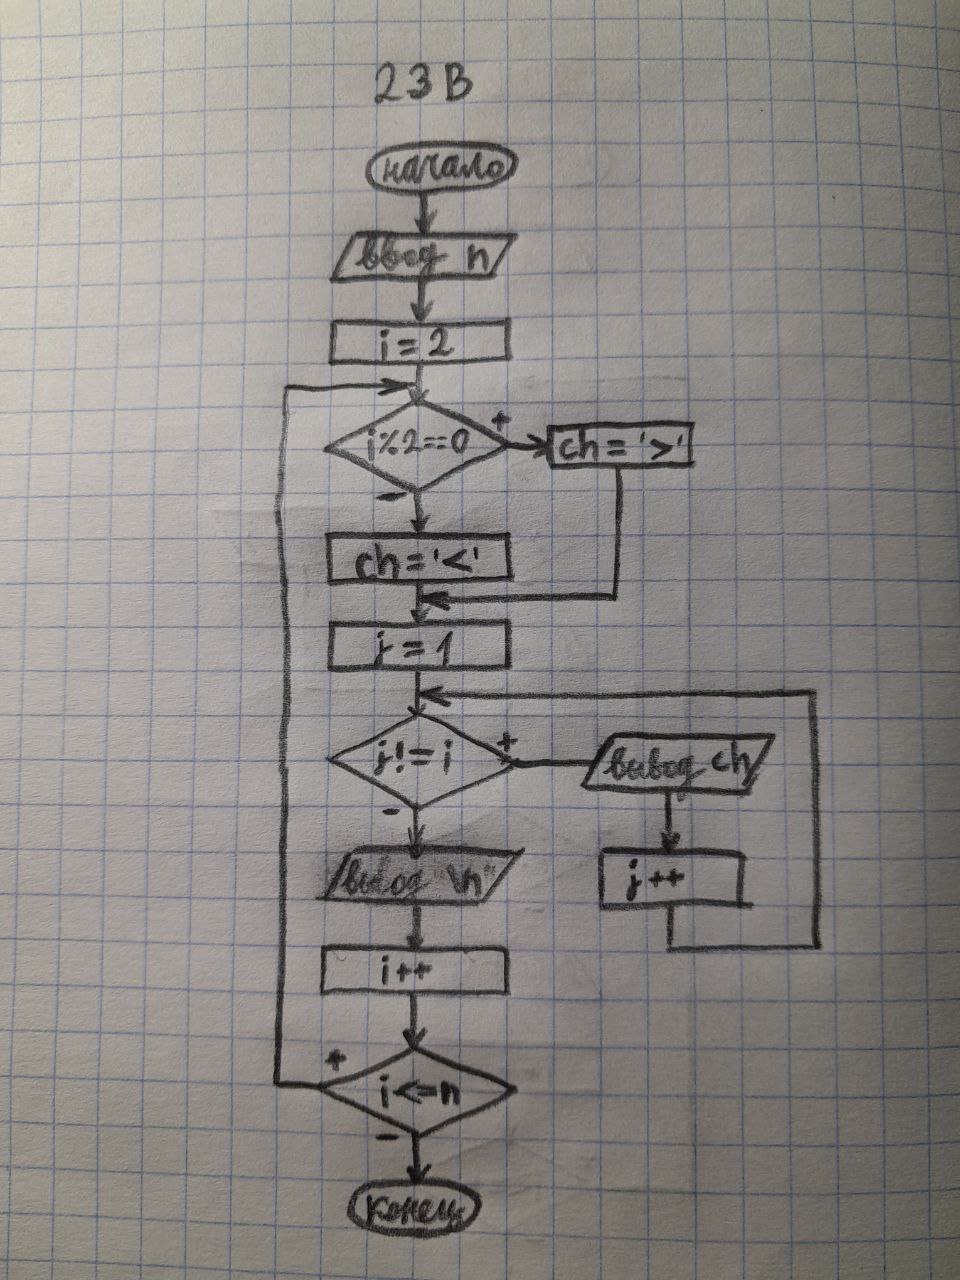 23В
начало
ввод n
i=2
i%2==0
+
ch='>'
-
ch='<'
j=1
j!=i
+
вывод ch
-
вывод \n"
j++
i++
+
i<=n
-
конец